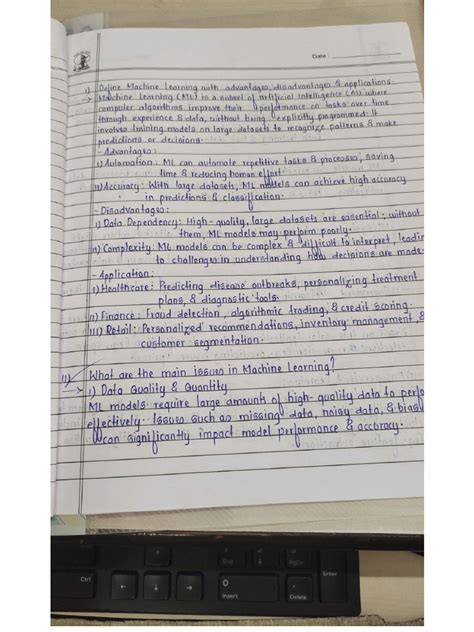 Date :
1) Define Machine Learning with advantages, disadvantages & applications.
→ Machine Learning (ML) is a subset of Artificial Intelligence (AI) where
computer algorithms improve their performance on tasks over time
through experience & data, without being explicitly programmed. It
involves training models on large datasets to recognize patterns & make
predictions or decisions.
- Advantages:
i) Automation: ML can automate repetitive tasks & processes, saving
time & reducing human effort.
ii) Accuracy: With large datasets, ML models can achieve high accuracy
in predictions & classification.
- Disadvantages:
i) Data Dependency: High-quality, large datasets are essential; without
them, ML models may perform poorly.
ii) Complexity: ML models can be complex & difficult to interpret, leadin
to challenges in understanding how decisions are made.
- Application:
i) Healthcare: Predicting disease outbreaks, personalizing treatment
plans, & diagnostic tools.
ii) Finance: Fraud detection, algorithmic trading, & credit scoring.
iii) Retail: Personalized recommendations, inventory management, &
customer segmentation.
11) What are the main issues in Machine Learning?
→ i) Data Quality & Quantity
ML models require large amount of high-quality data to perfo
effectively. Issues such as missing data, noisy data, & bias
can significantly impact model performance & accuracy.
End
PgDn
Enter
Ctrl
0
Insert
.
Delete